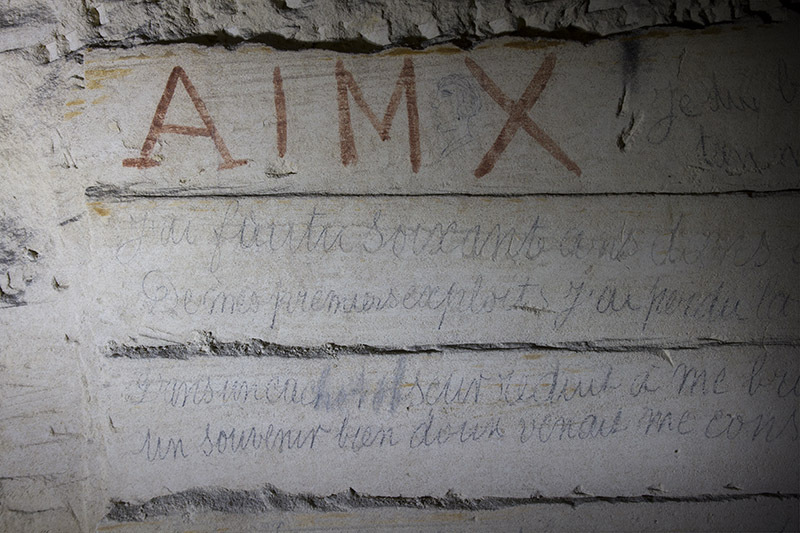 AIMX
je suis
J'ai foutu soixante ans dans
De mes premiers exploits J'ai perdu la
Dans un cachot obscur réduit à me
un souvenir bien doux venait me cons